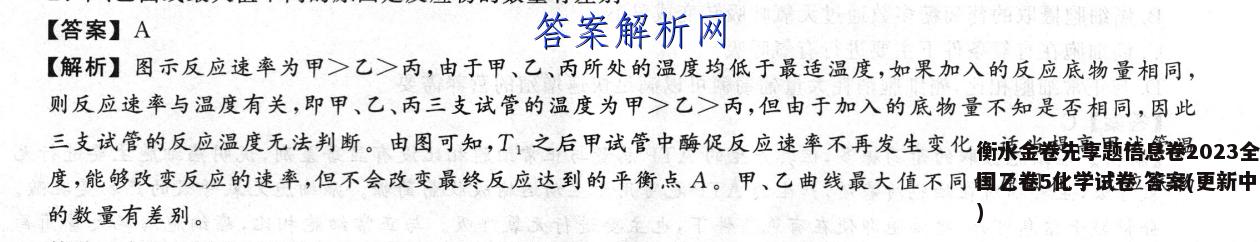 【答案】A
答案解析网
【解析】图示反应速率为甲>乙>丙,由于甲、乙、丙所处的温度均低于最适温度,如果加入的反应底物量相同,
则反应速率与温度有关,即甲、乙、丙三支试管的温度为甲>乙>丙,但由于加入的底物量不知是否相同,因此
三支试管的反应温度无法判断。由图可知,T₁ 之后甲试管中酶促反应速率不再发生变化
度,能够改变反应的速率,但不会改变最终反应达到的平衡点 A。甲、乙曲线最大值不同
的数量有差别。
衡水金卷先享题信息卷2023全
国乙卷5化学试卷 答案(更新中
)